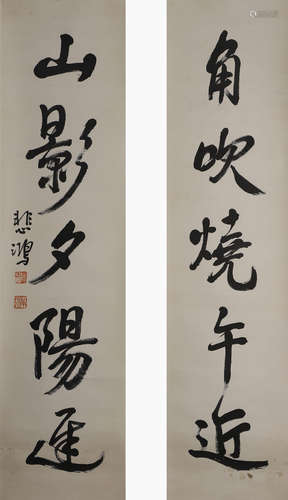 角吹燒午近
山影夕陽遲
悲鴻